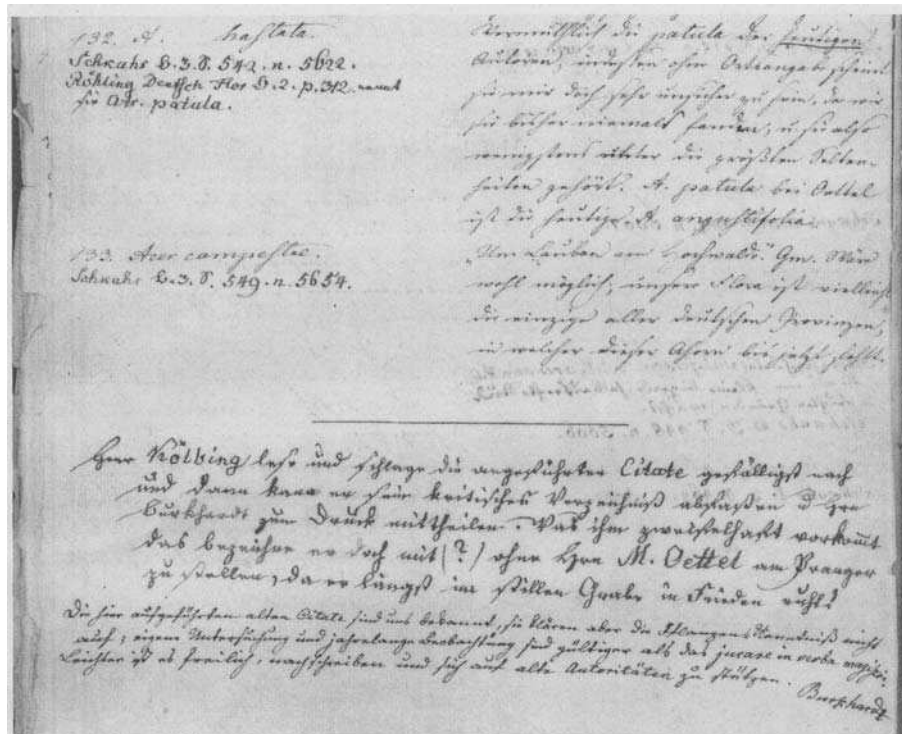 132. A. hastata.
Schkuhr B. 3. S. 542. n. 5622.
Röhling Deutsch Flor B. 2. p. 312. nennt
sie Atr. patula.
Vermuthlich die patula der heutigen
Autoren, indessen ohne Ortsangabe scheint
sie mir doch sehr unsicher zu sein, da wir
sie bisher niemals fanden, u. sie also
wenigstens unter die größten Selten-
heiten gehört. A. patula bei Oettel
ist die heutige A. angustifolia.
133. Acer campestre.
Schkuhr B. 3. S. 549. n. 5654.
"Um Lauban am Hochwald". Gm. Wäre
wohl möglich, unsere Flora ist vielleicht
die einzige aller deutschen Provinzen,
in welcher dieser Ahorn bis jetzt fehlt.
Herr Kölbing lese und schlage die angeführten Citate gefälligst nach
und dann kann er sein kritisches Verzeichniß abfaßen u Hrn
Burkhardt zum Druck mittheilen. Was ihm zweifelhaft vorkommt
das bezeichne er doch mit (?) ohne Hrn M. Oettel am Pranger
zu stellen, da er längst im stillen Grabe in Frieden ruht!
Die hier aufgeführten alten Citate sind uns bekannt, sie klären aber die Pflanzenkenntniß nicht
auf; eigene Untersuchung und jahrelange Beobachtung sind gültiger als das jurare in verba magistri.
Leichter ist es freilich, nachschreiben und sich auf alte Autoritäten zu stützen.
Burkhardt